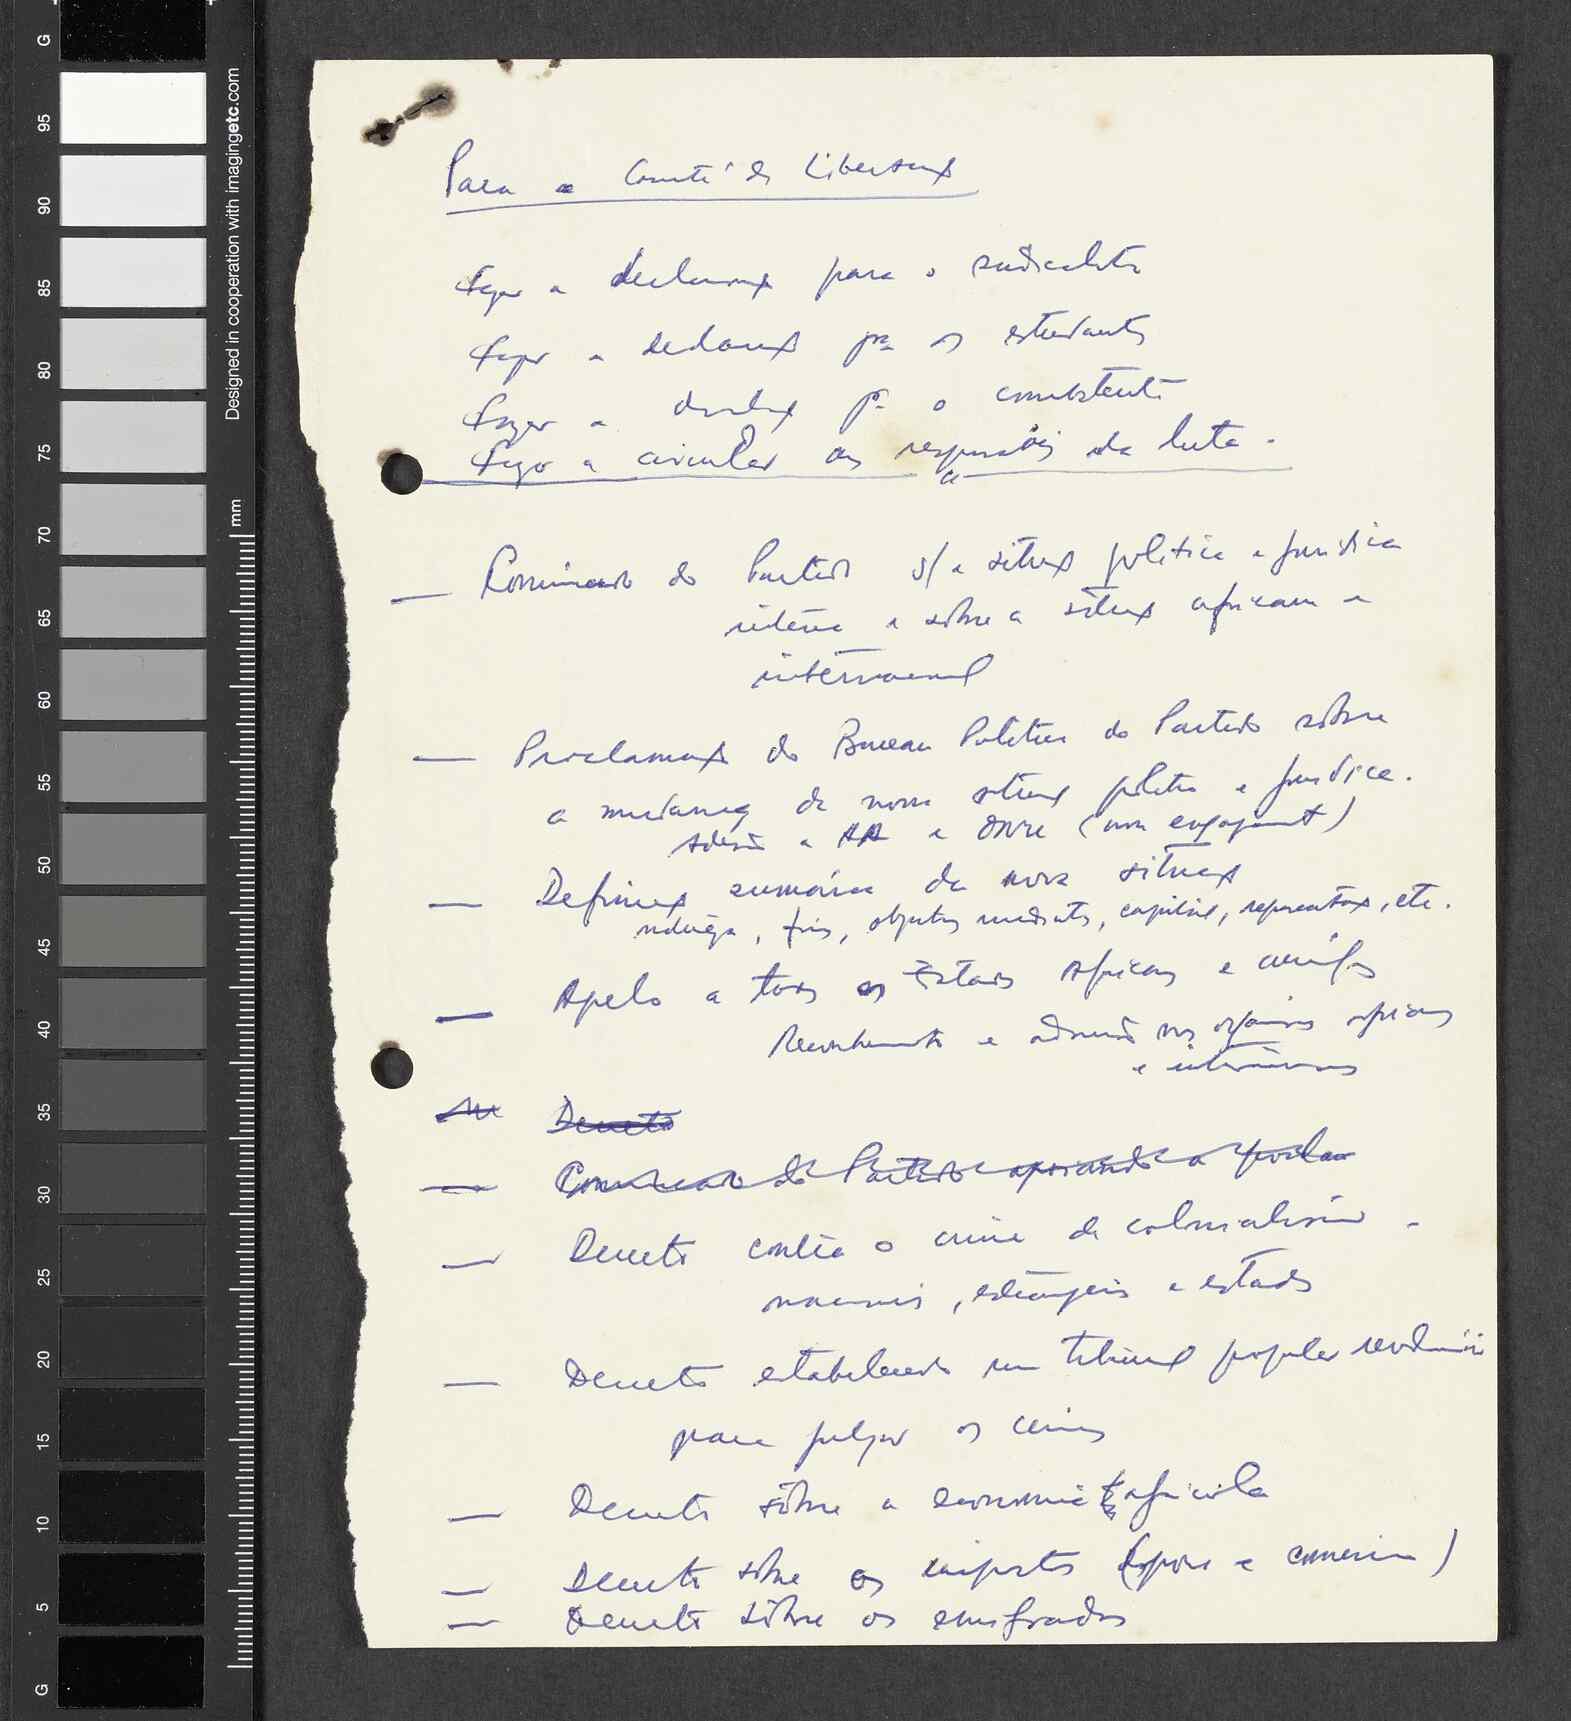 G
95
90
85
80
75
70
65
60
55
50
45
40
35
30
25
20
15
10
5
G
Designed in cooperation with imagingetc.com
mm
Para o Comité de Libertação
Fazer a declaração para o sindicalista
Fazer a declaração pra os estudantes
Fazer a pª o combatente
Fazer a circular aos responsáveis da luta.
— Comunicado do Partido s/ a situação política e jurídica
interna e sôbre a situação africana e
internacional
— Proclamação do Bureau Político do Partido sôbre
a mudança da nossa situação política e jurídica.
Adesão a AA e ONU (non engagement)
— Definição sumária da nova situação
natureza, fins, objectivos imediatos, capital, representação, etc.
— Apelo a todos os Estados Africanos e amigos
Reconhecimento e admissão nos organismos africanos
e internacionais
Decreto
— Comunicado do Partido apoiando a proclam
— Decreto contra o crime de colonialismo -
nacionais, estrangeiros e estados
— Decreto estabelecendo um tribunal popular revolucionário
para julgar os crimes
— Decreto sôbre a economia agrícola
— Decreto sôbre os impostos ( e comércio)
— Decreto sôbre os emigrados